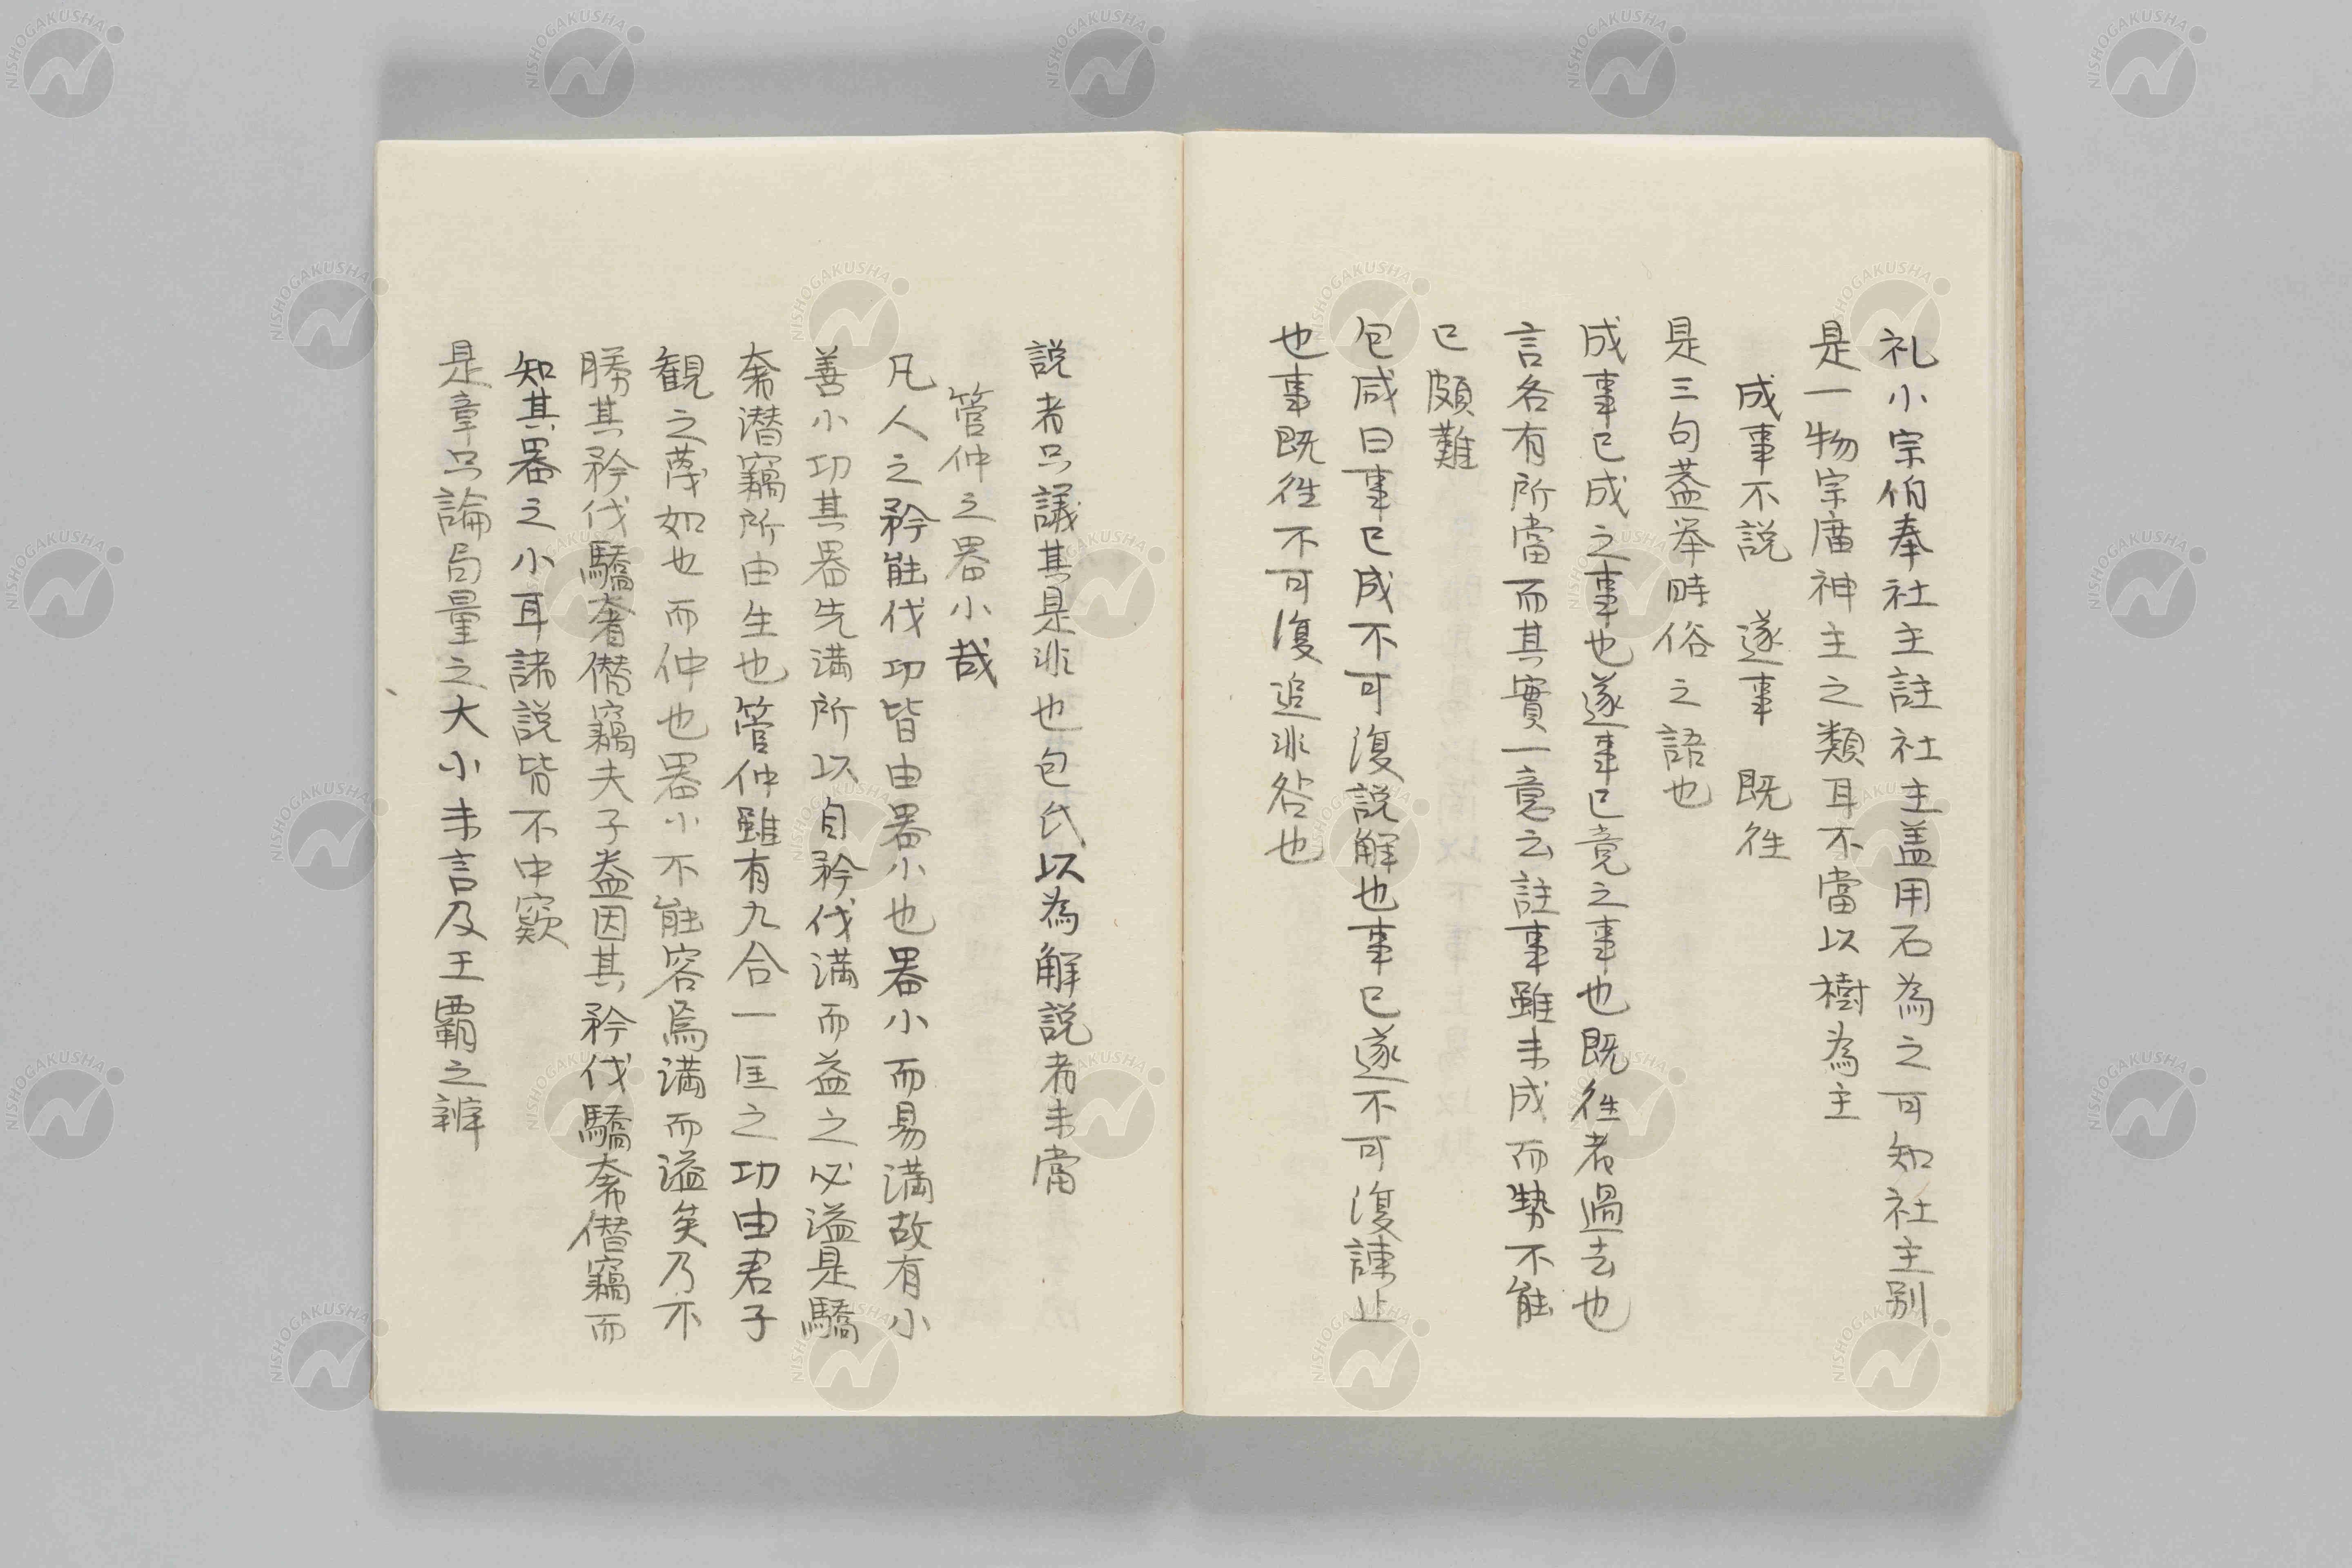 礼小宗伯奉社主註社主盖用石為之可知社主別
是一物宗廟神主之類耳不當以樹為主
成事不説　遂事　既徃
是三句蓋举時俗之語也
成事已成之事也遂事已竟之事也既徃者過去也
言各有所當而其實一意云註事雖未成而勢不能
已頗難
包咸曰事已成不可復説解也事已遂不可復諌止
也事既徃不可復追非咎也
説者只議其是非也包氏以為解説者未當
管仲之器小哉
凡人之矜能伐功皆由器小也器小而易満故有小
善小功其器先満所以自矜伐満而益之必溢是驕
奢潜竊所由生也管仲雖有九合一匡之功由君子
観之蔑如也而仲也器小不能容焉満而溢矣乃不
勝其矜伐驕奢僭竊夫子盖因其矜伐驕奢僭竊而
知其器之小耳諸説皆不中窾
是章只論局量之大小未言及王覇之辨
NISHOGAKUSHA